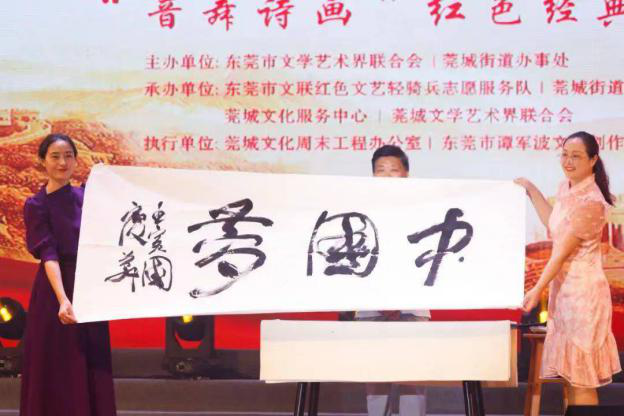 "音舞诗画"红色经典
主办单位: 东莞市文学艺术界联合会 | 莞城街道办事处
承办单位: 东莞市文联红色文艺轻骑兵志愿服务队 | 莞城街道
莞城文化服务中心 | 莞城文学艺术界联合会
执行单位: 莞城文化周末工程办公室 | 东莞市谭军波文 创作
中國夢